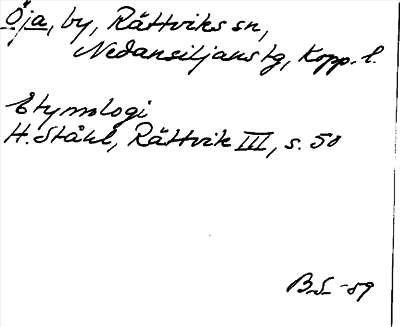 Öja, by, Rättviks sn,
Nedansiljans tg, Kopp. l.
Etymologi
H. Ståhl, Rättvik III, s. 50
B.S. -89